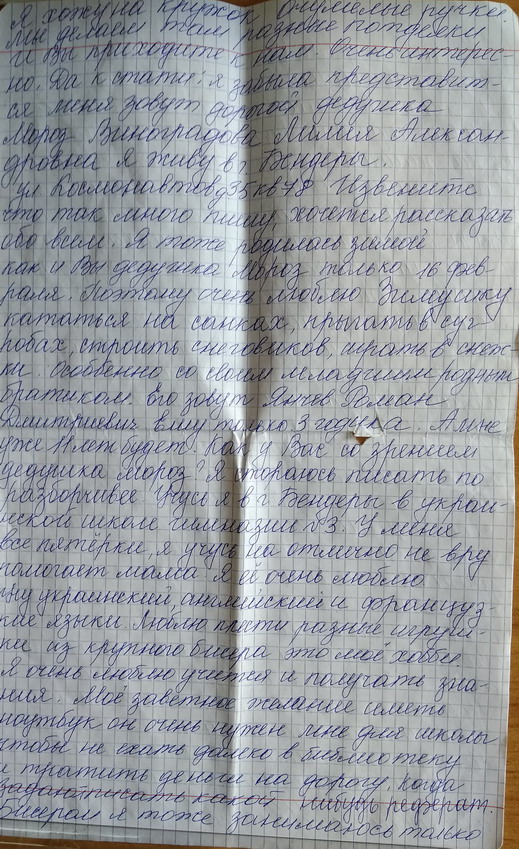 Я хожу на кружок очумелые ручки
Мы делаем там разные поделки
и Вы приходите к нам. Очень интерес-
но. Да к стати! я забыла представит-
ся меня зовут дорогой дедушка
Мороз Виноградова Лилия Алексан-
дровна я живу в г. Бендеры.
ул Космонавтов д35 кв78 Извените
что так много пишу, хочется рассказать
обо всем. Я тоже родилась зимой
как и Вы дедушка Мороз только 16 фев-
раля. Поэтому очень люблю Зимушку
кататься на санках, прыгать в суг
робах, строить снеговиков, играть в снеж
ки. Особенно со своим младшим родным
братиком. Его зовут Янчев Роман
Дмитриевич Ему только 3 годика. А мне
уже 11 лет будет. Как у Вас со зрением
дедушка Мороз? Я стораюсь писать по
разборчивее Учусь я в г. Бендеры в украи-
нской школе гимназии №3. У меня
все пятёрки, я учусь на отлично не вру
помогает мама. Я её очень люблю
чу украинский, английский и француз-
кие языки. Люблю плести разные игруш-
ки из крупного бисера это моё хобби.
Я очень люблю учится и получать зна-
ния. Моё заветное желание иметь
ноутбук он очень нужен мне для школы
чтобы не ехать далеко в библиотеку
и тратить деньги на дорогу, когда
писать какой пишуь реферат.
Бисером я тоже занимаюсь только